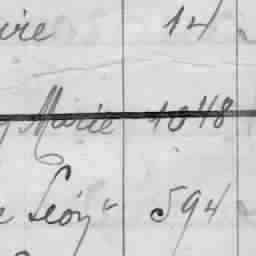 vie 14
Marie 1048
Léon 594